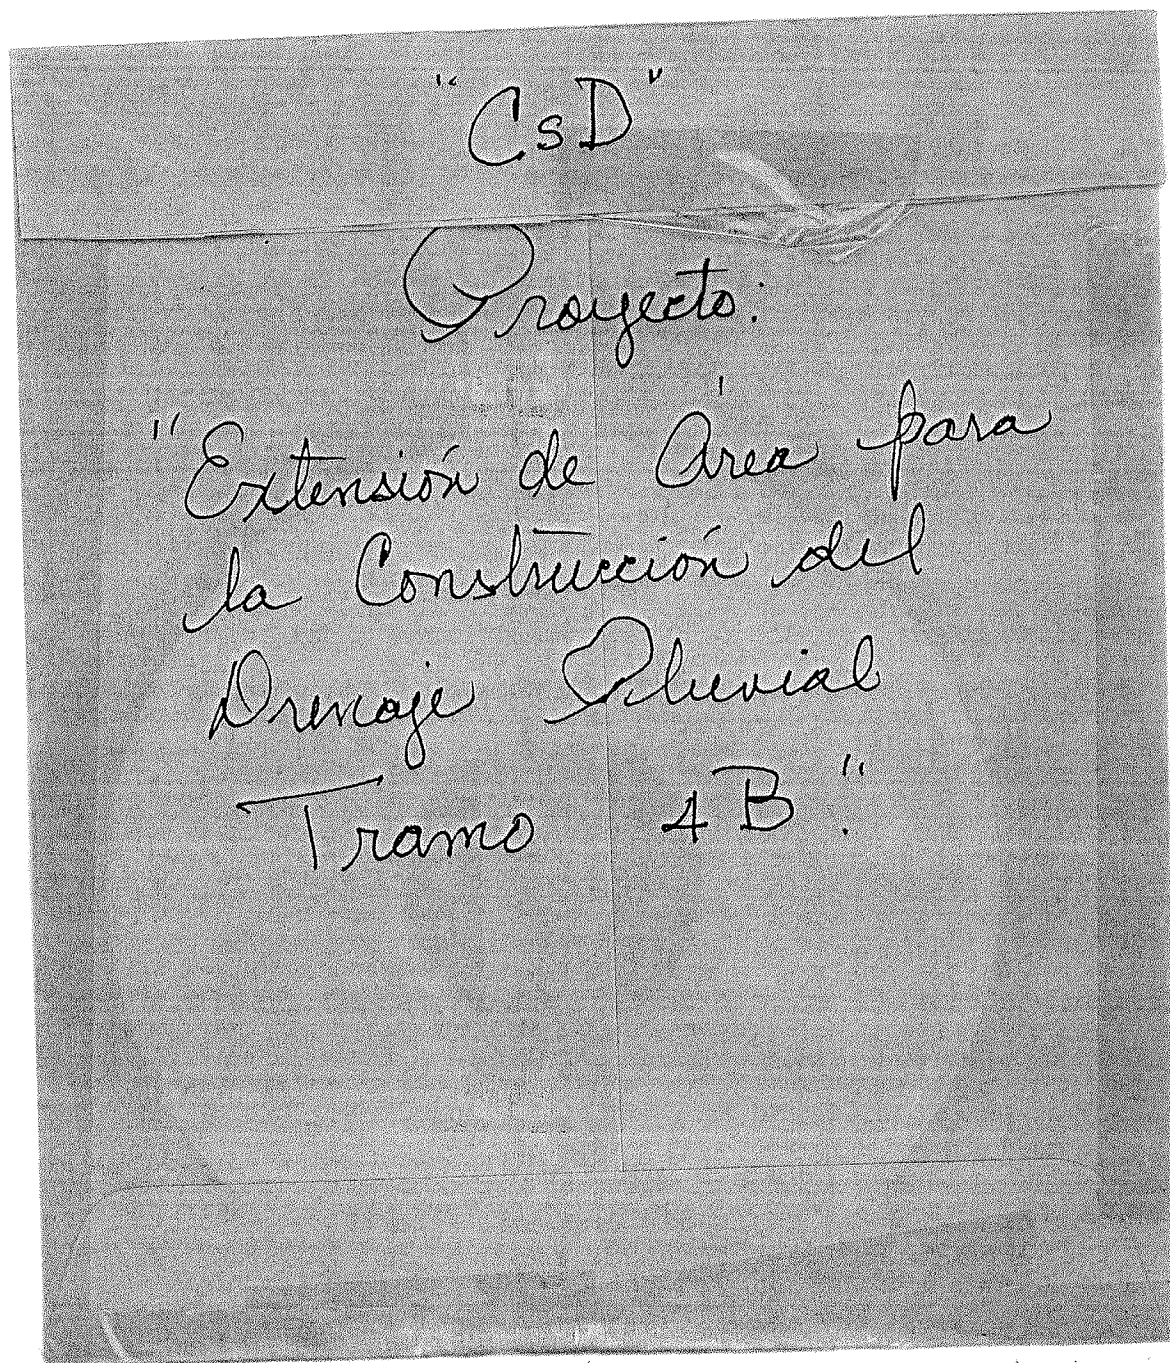 "CsD"
Proyecto:
"Extensión de Área para
la Construcción del
Drenaje Pluvial
Tramo 4B."